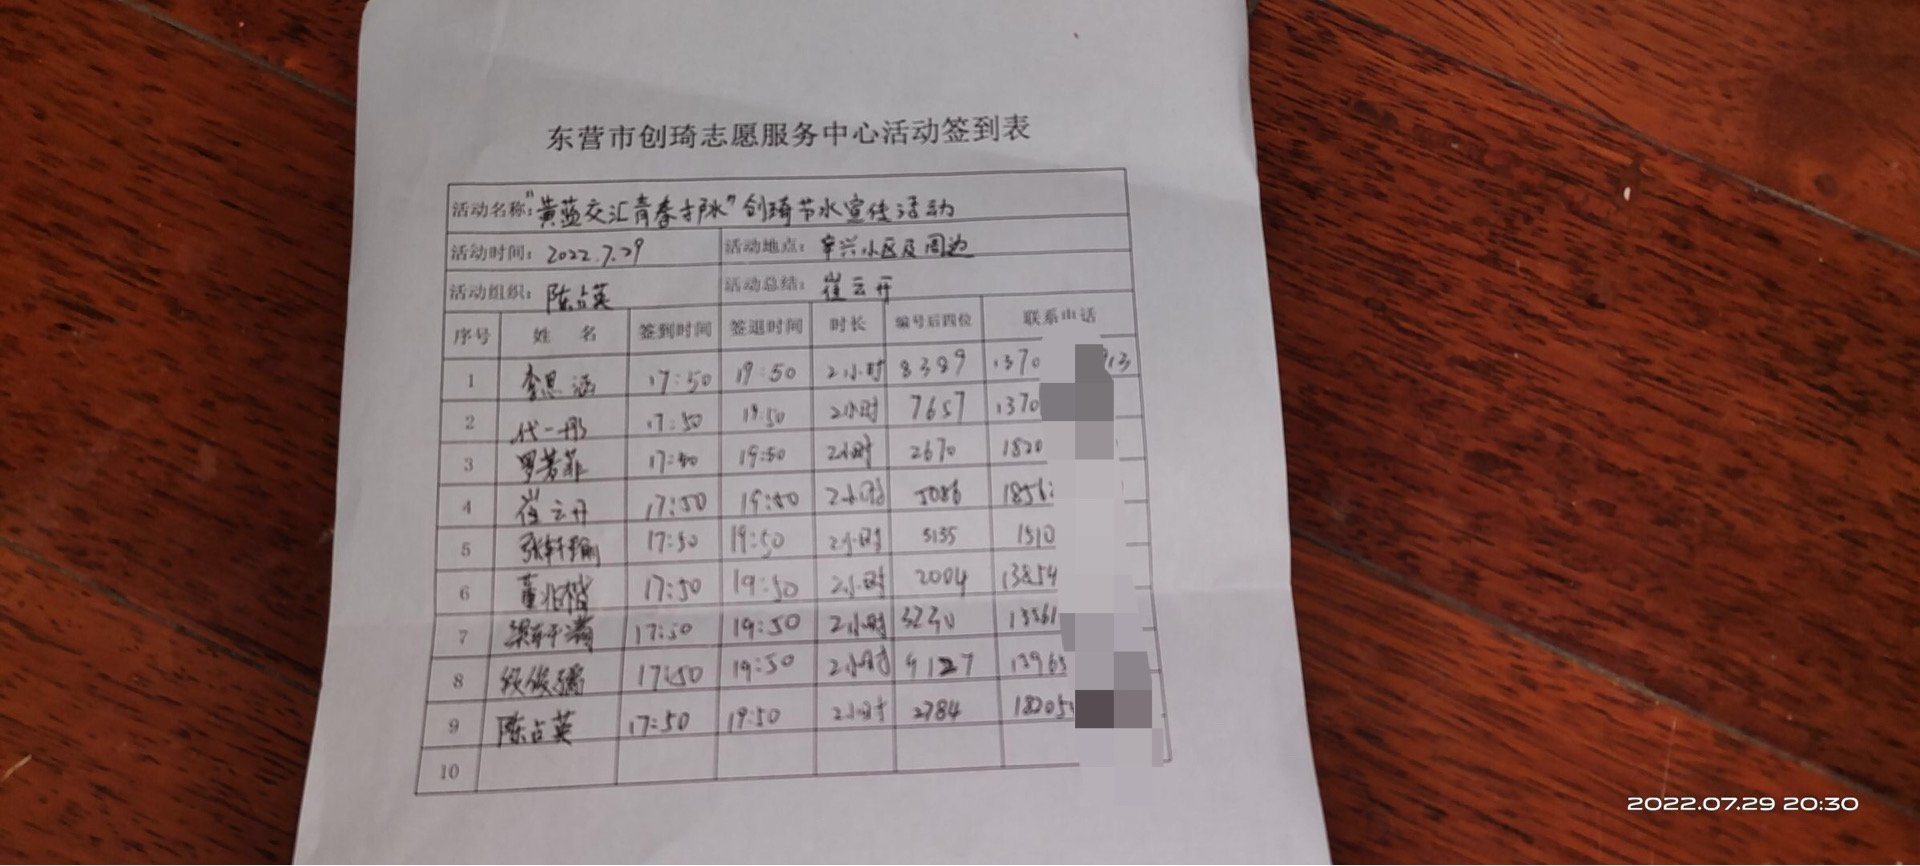 东营市创琦志愿服务中心活动签到表
活动名称:"黄蓝交汇青春护水"创琦节水宣传活动
活动时间: 2022.7.29 活动地点: 辛兴小区及周边
活动组织: 陈占英 活动总结: 崔云开
序号 姓 名 签到时间 签退时间 时长 编号后四位 联系电话
1 李思涵 17:50 19:50 2小时 8389 1370 913
2 代一彤 17:50 19:50 2小时 7657 1370
3 罗芳菲 17:50 19:50 2小时 2670 1820
4 崔云开 17:50 19:50 2小时 5086 1856
5 张轩瑜 17:50 19:50 2小时 5135 1510
6 董兆楷 17:50 19:50 2小时 2004 13854
7 梁轩 17:50 19:50 2小时 3230 13561
8 段俊 17:50 19:50 2小时 9127 13965
9 陈占英 17:50 19:50 2小时 2784 18205
10
2022.07.29 20:30